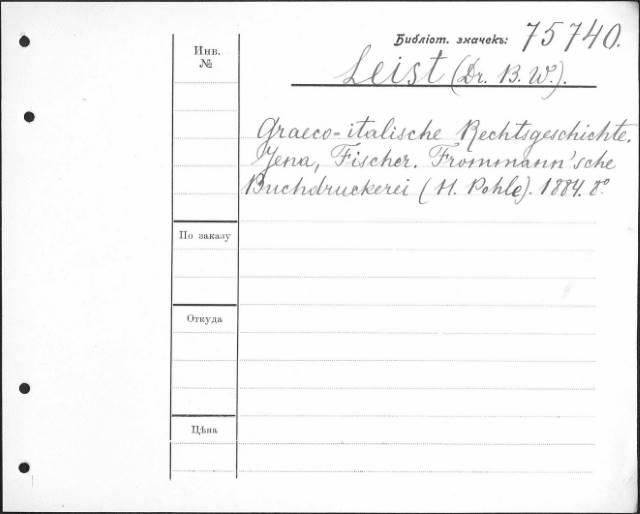 Библіот. значекъ: 75740.
Инв.
№
Leist (Dr. B. W.).
Graeco-italische Rechtsgeschichte.
Jena, Fischer. Frommann'sche
Buchdruckerei (H. Pohle). 1884. 8°
По заказу
Откуда
Цѣна